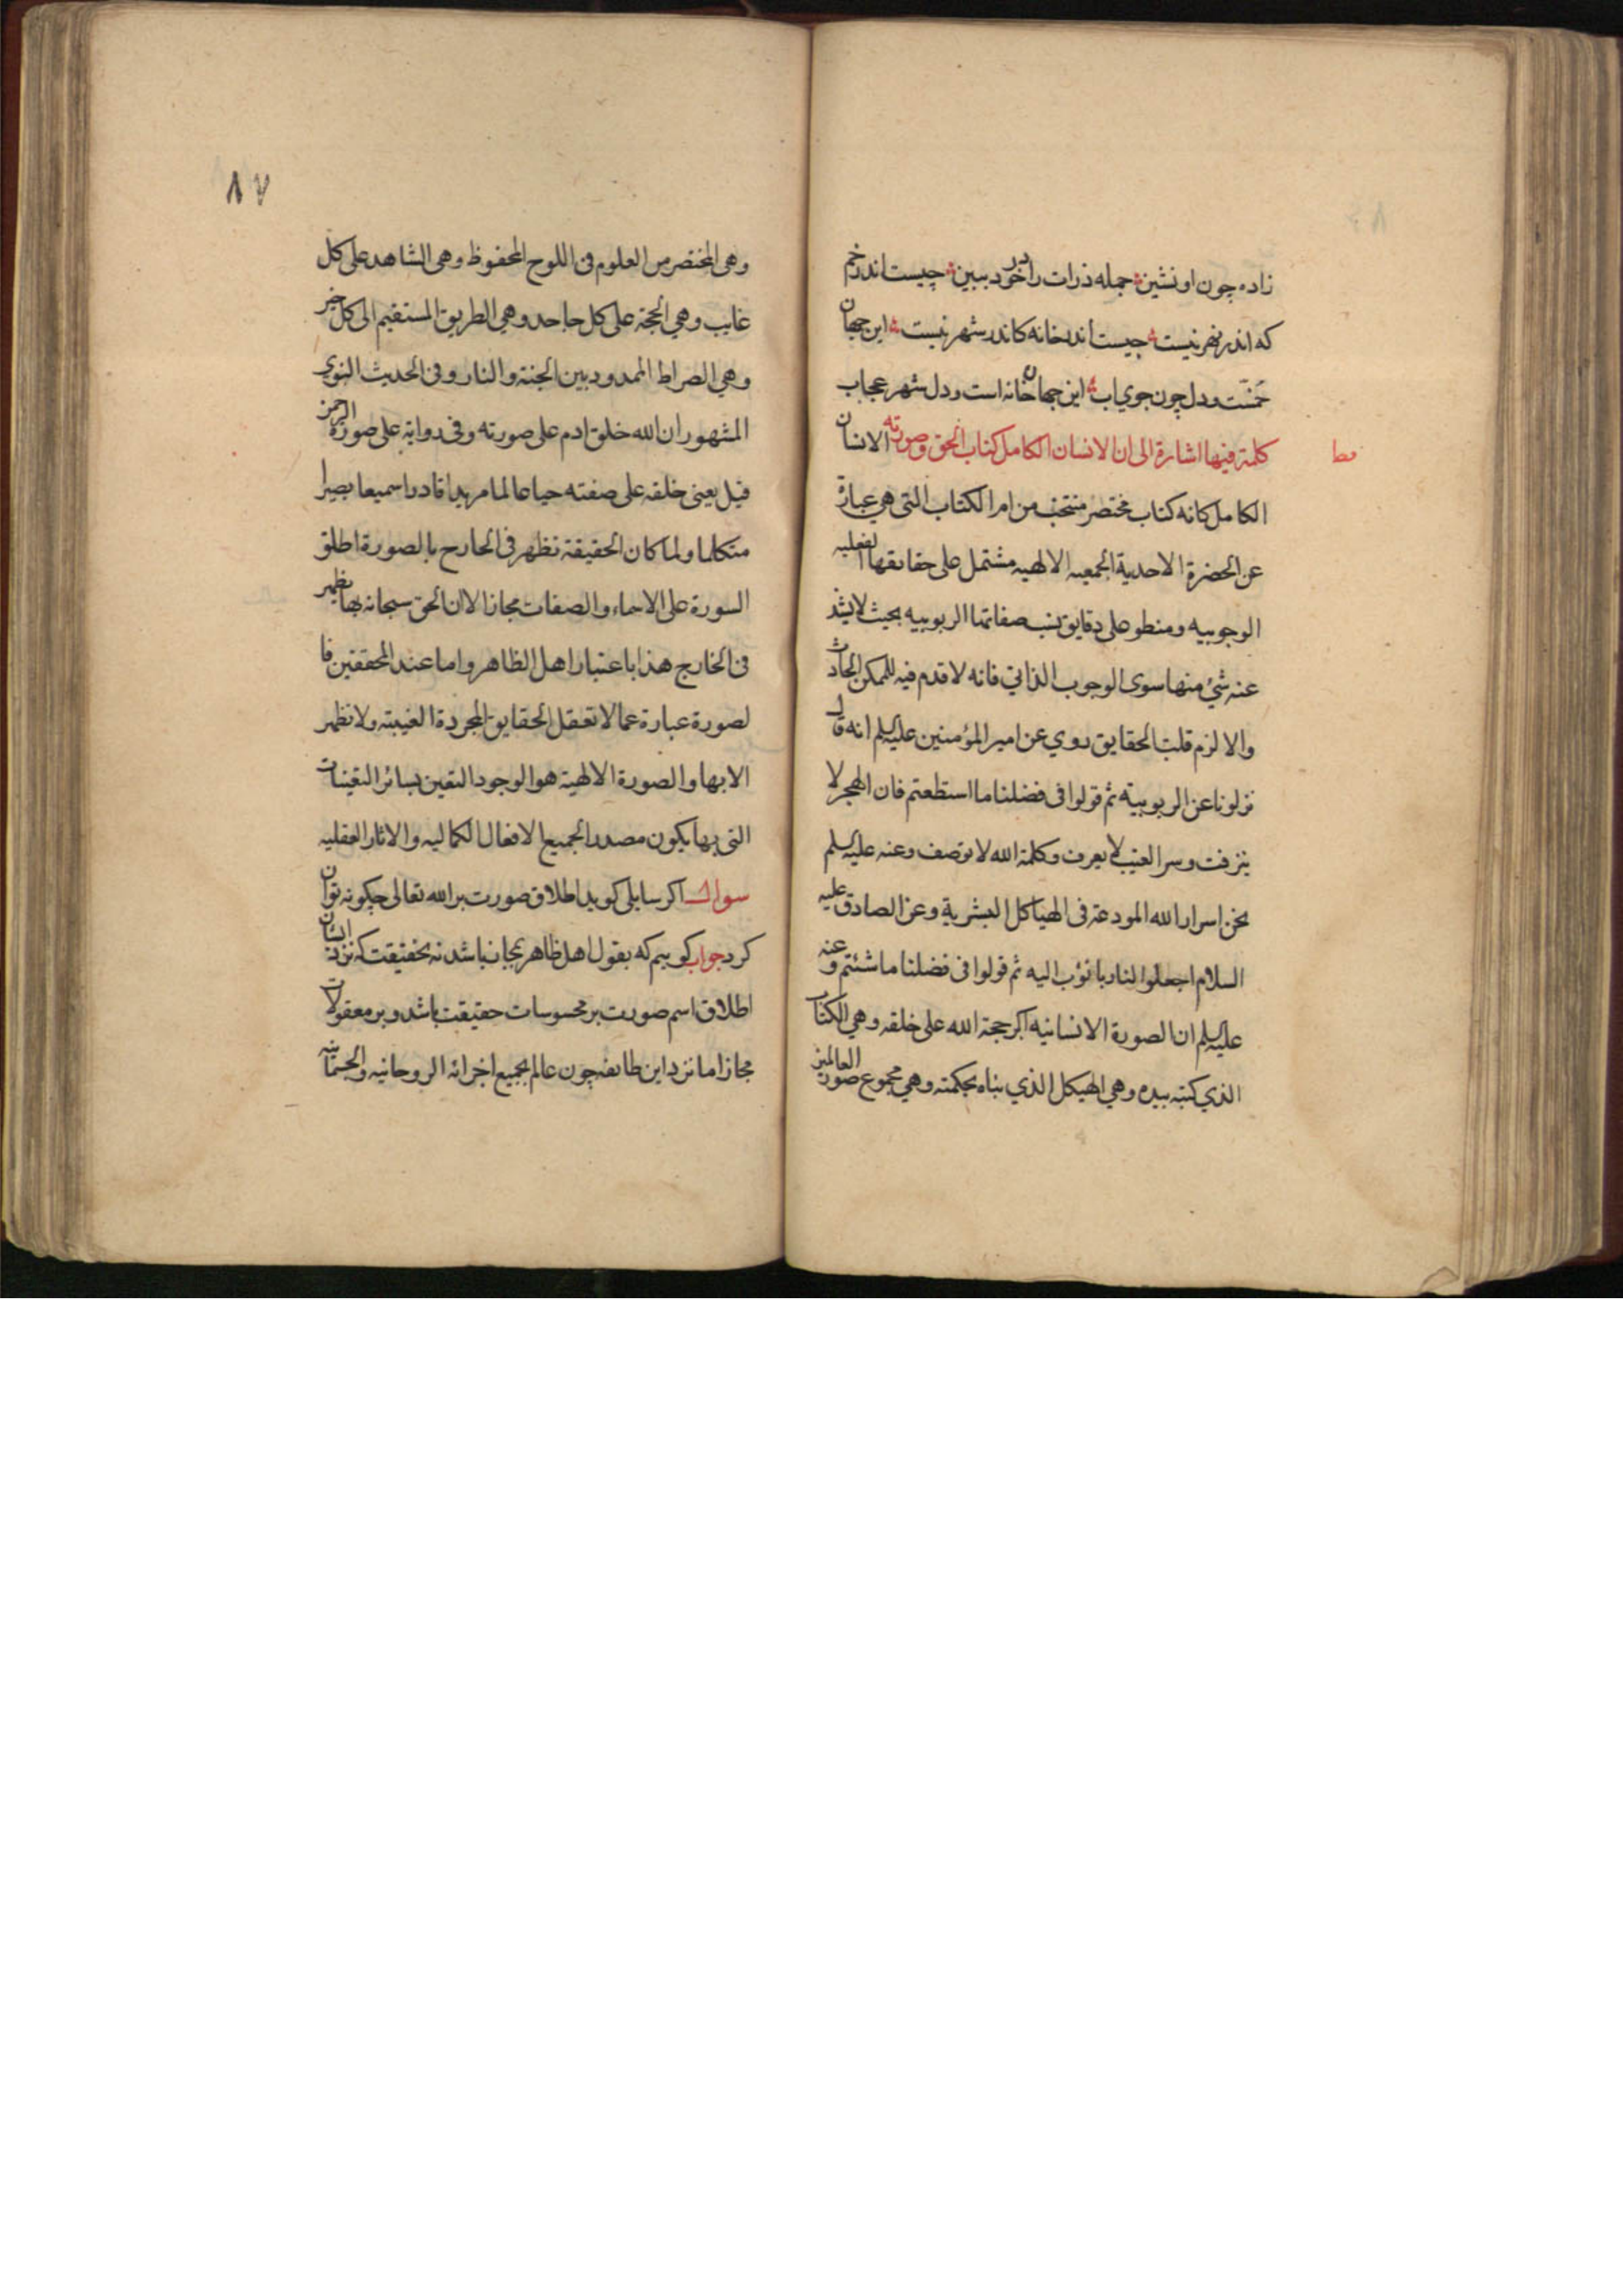 زاده چون او نشین جمله ذرات را در خود ببین چیست اندر خم
که اندر نهر نیست چیست اندر خانه کاندر شهر نیست این جهان
خمّست و دل چون جوی اب این جهان خانه است و دل شهر عجاب
مط
كلمة فیها اشارة الی ان الانسان الکامل کتاب الحق وصورته الانسان
الکامل کانه کتاب مختصر منتخب من ام الکتاب التی هی عبارة
عن الحضرة الاحدیة الجمعیه الالهیه مشتمل علی حقایقها الفعلیه
الوجوبیه ومنطو علی دقایق نسب صفاتها الربوبیه بحیث لایشذ
عنه شئ منها سوی الوجوب الذاتی فانه لا قدم فیه للممکن الحادث
والا لزم قلب الحقایق روی عن امیر المؤمنین علیه السلم انه قال
نزلونا عن الربوبیة ثم قولوا فی فضلنا ما استطعتم فان البحر لا
ینزفت وسر الغیب لا یعرف وکلمة الله لا توصف وعنه علیه السلم
نحن اسرار الله المودعة فی الهیاکل البشریة وعن الصادق علیه
السلام اجعلوا لنا ربا نؤب الیه ثم قولوا فی فضلنا ما شئتم وعنه
علیه السلم ان الصورة الانسانیه اکبر حجة الله علی خلقه وهی الکتاب
الذی کتبه بیده وهی الهیکل الذی بناه بحکمته وهی مجموع صور العالمین
٨٧
وهی المختصر من العلوم فی اللوح المحفوظ وهی الشاهد علی کل
غایب وهی الحجة علی کل جاحد وهی الطریق المستقیم الی کل خیر
وهی الصراط الممدود بین الجنة والنار وفی الحدیث النبوی
المشهور ان الله خلق ادم علی صورته وفی روایة علی صورة الرحمن
قیل یعنی خلقه علی صفته حیا عالما مریدا قادرا سمیعا بصیرا
متکلما ولما کان الحقیقة تظهر فی الخارج بالصورة اطلق
السورة علی الاسماء والصفات مجازا لان الحق سبحانه بها یظهر
فی الخارج هذا باعتبار اهل الظاهر واما عند المحققین فا
لصورة عبارة عما لا تعقل الحقایق المجردة الغیبیة ولا تظهر
الا بها والصورة الالهیة هو الوجود التعین بسائر التعینات
التی بها یکون مصدر الجمیع الافعال الکمالیه والاثار العفلیه
سوال اکر سایلی کوید اطلاق صورت بر الله تعالی چکونه توان
کرد جواب کوییم که بقول اهل ظاهر بمجاز باشد نه بحقیقت که نزد ایشان
اطلاق اسم صورت بر محسوسات حقیقت باشد و بر معقولات
مجاز اما نزد این طایفه چون عالم بجمیع اجزائه الروحانیه والجسمانیه